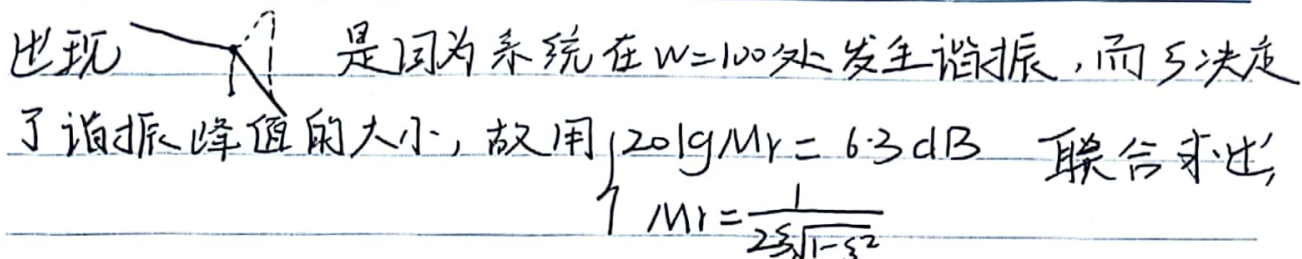 出现 是因为系统在w=100处发生谐振,而ξ决定
了谐振峰值的大小,故用{20lgMr=6.3dB 联合求出,
Mr=1/(2ξ√(1-ξ²))